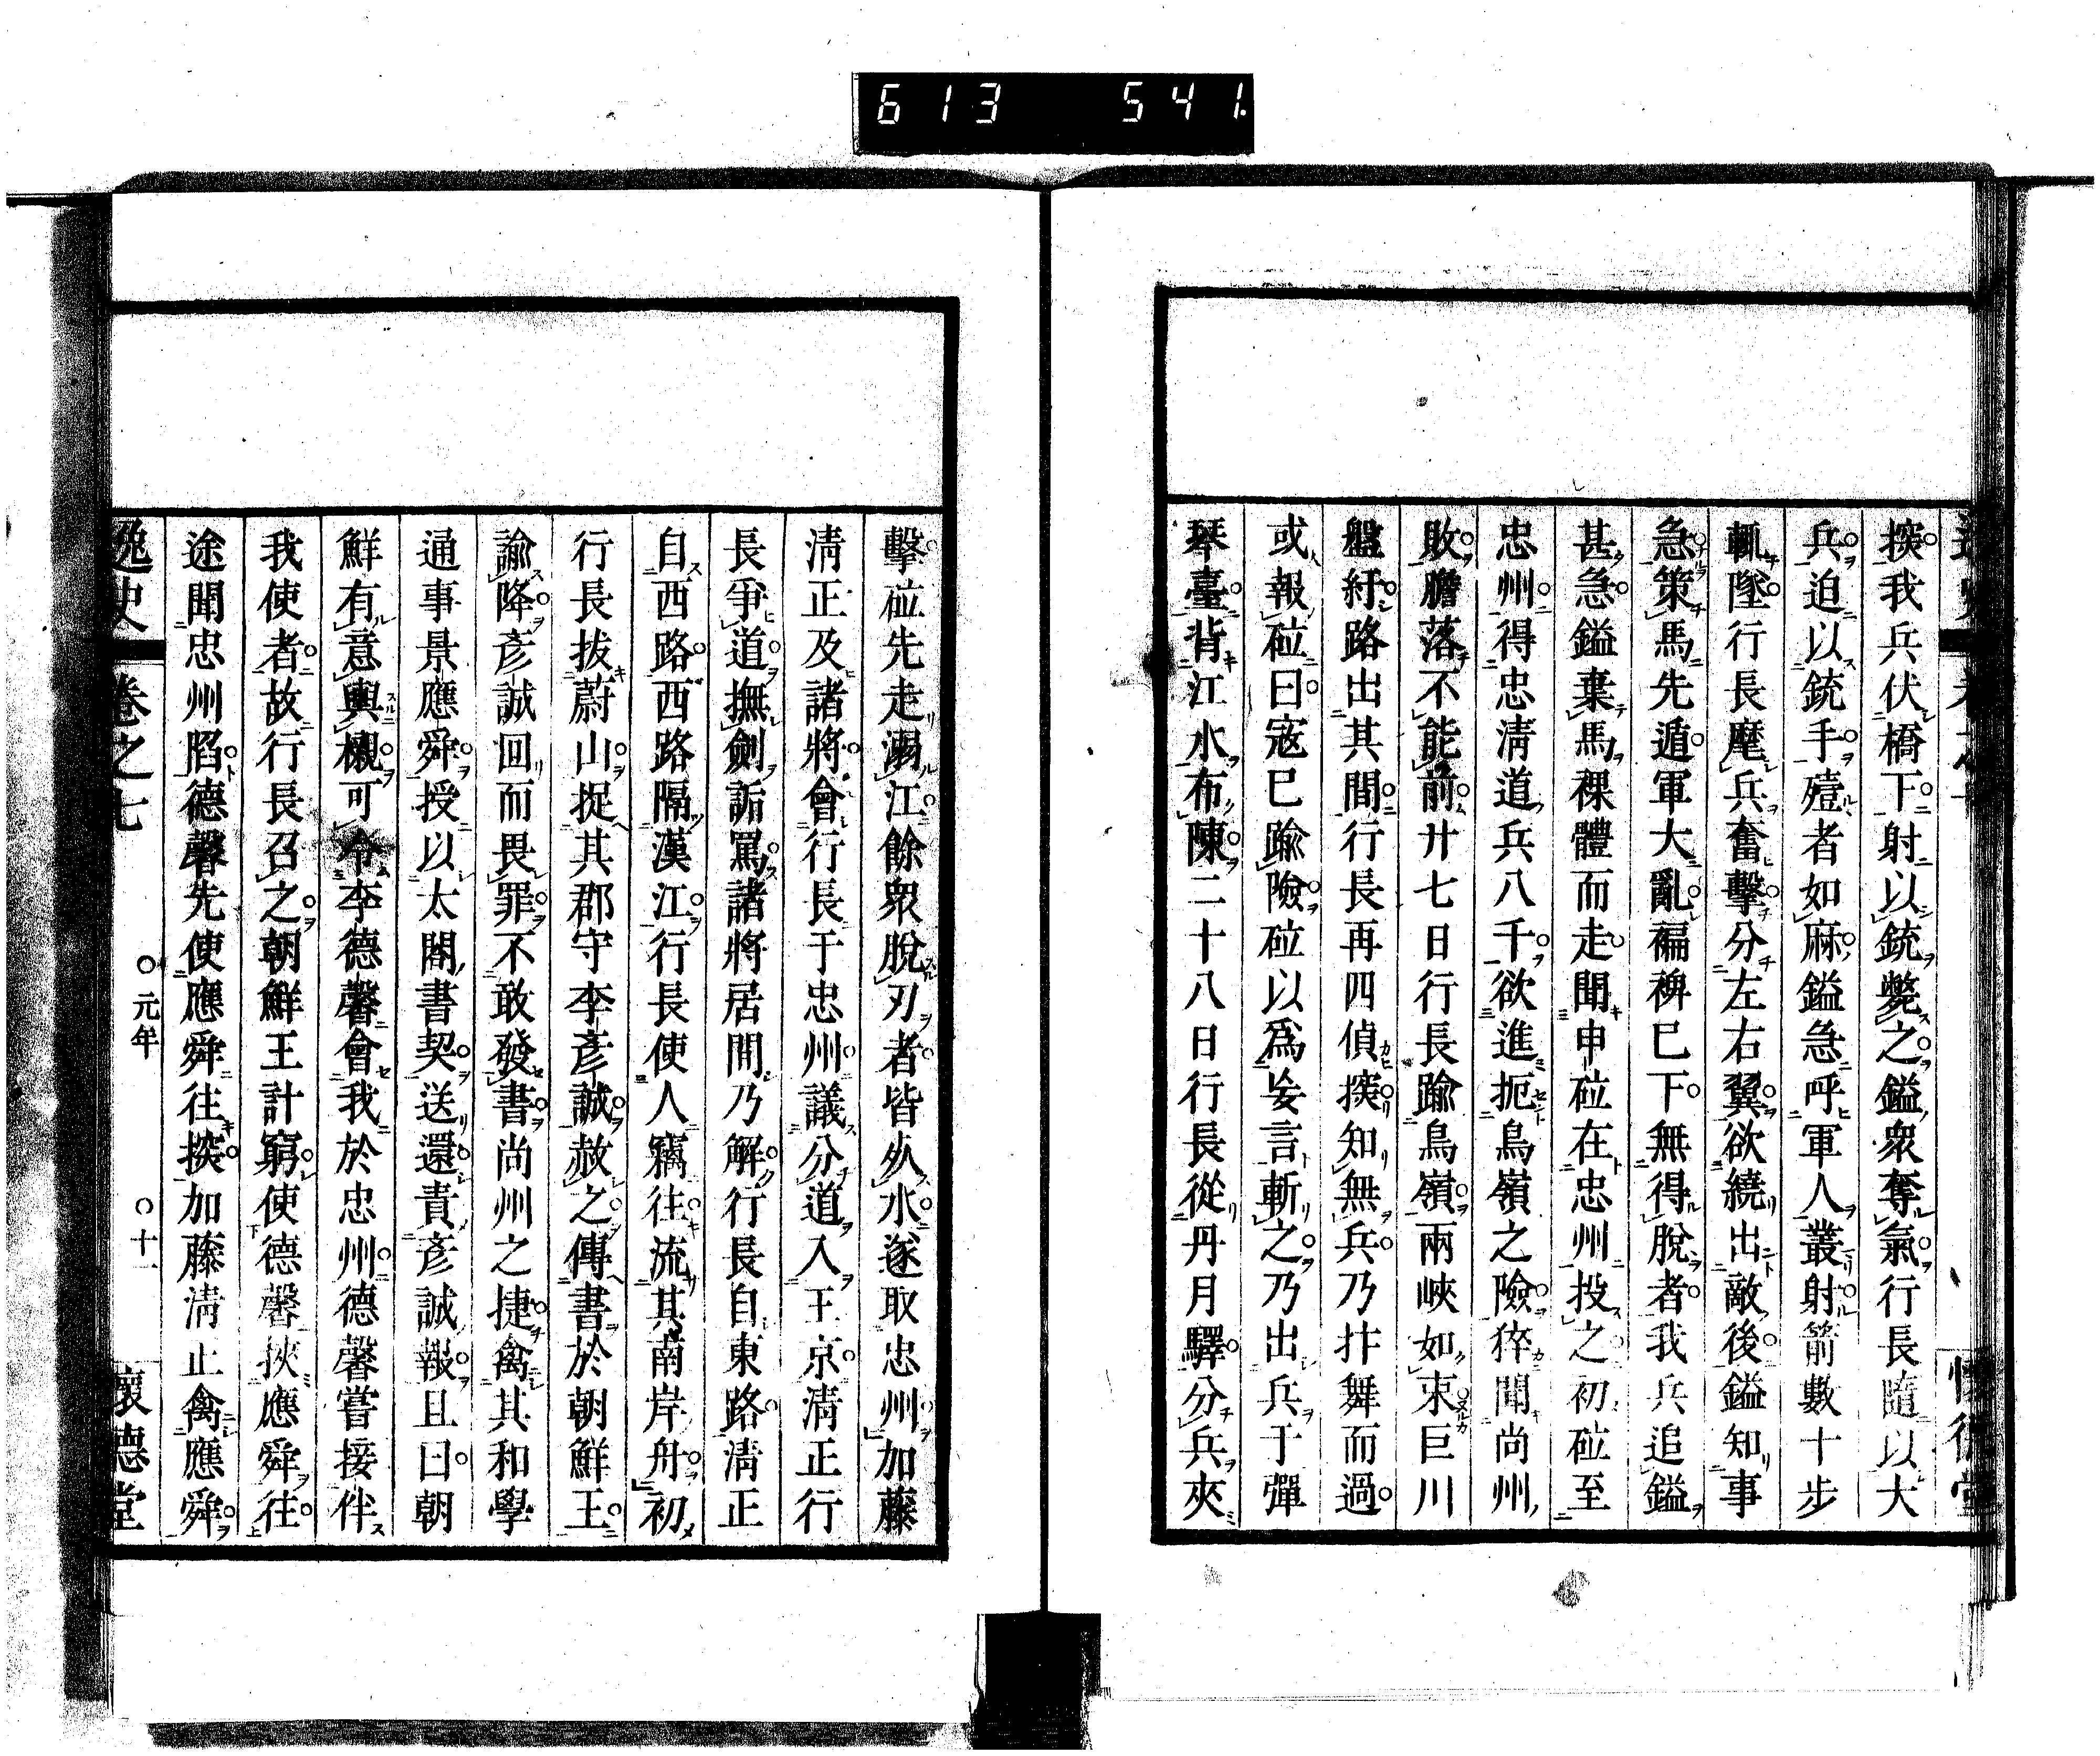 613 541.
探我兵伏橋下射以銃斃之鎰衆奪氣行長隨以大
兵迫以銃手殪者如麻鎰急呼軍人叢射箭數十步
輒墜行長麾兵奮擊分左右翼欲繞出敵後鎰知事
急策馬先遁軍大亂褊裨已下無得脫者我兵追鎰
甚急鎰棄馬裸體而走聞申砬在忠州投之初砬至
忠州得忠淸道兵八千欲進扼鳥嶺之險猝聞尚州
敗膽落不能前廿七日行長踰鳥嶺兩峽如束巨川
盤紆路出其間行長再四偵探知無兵乃抃舞而過
或報砬曰寇已踰險砬以爲妄言斬之乃出兵于彈
琴臺背江水布陳二十八日行長從丹月驛分兵夾
擊砬先走溺江餘衆脫刃者皆死水遂取忠州加藤
淸正及諸將會行長于忠州議分道入王京淸正行
長爭道撫劍詬罵諸將居間乃解行長自東路淸正
自西路西路隔漢江行長使人竊往流其南岸舟初
行長拔蔚山捉其郡守李彥誠赦之傳書於朝鮮王
諭降彥誠回而畏罪不敢發書尚州之捷禽其和學
通事景應舜授以太閤書契送還責彥誠報且曰朝
鮮有意輿櫬可令李德馨會我於忠州德馨嘗接伴
我使者故行長召之朝鮮王計窮使德馨挾應舜往
途聞忠州陷德馨先使應舜往探加藤淸正禽應舜
逸史 卷之七 〇元年 〇十一 懷德堂